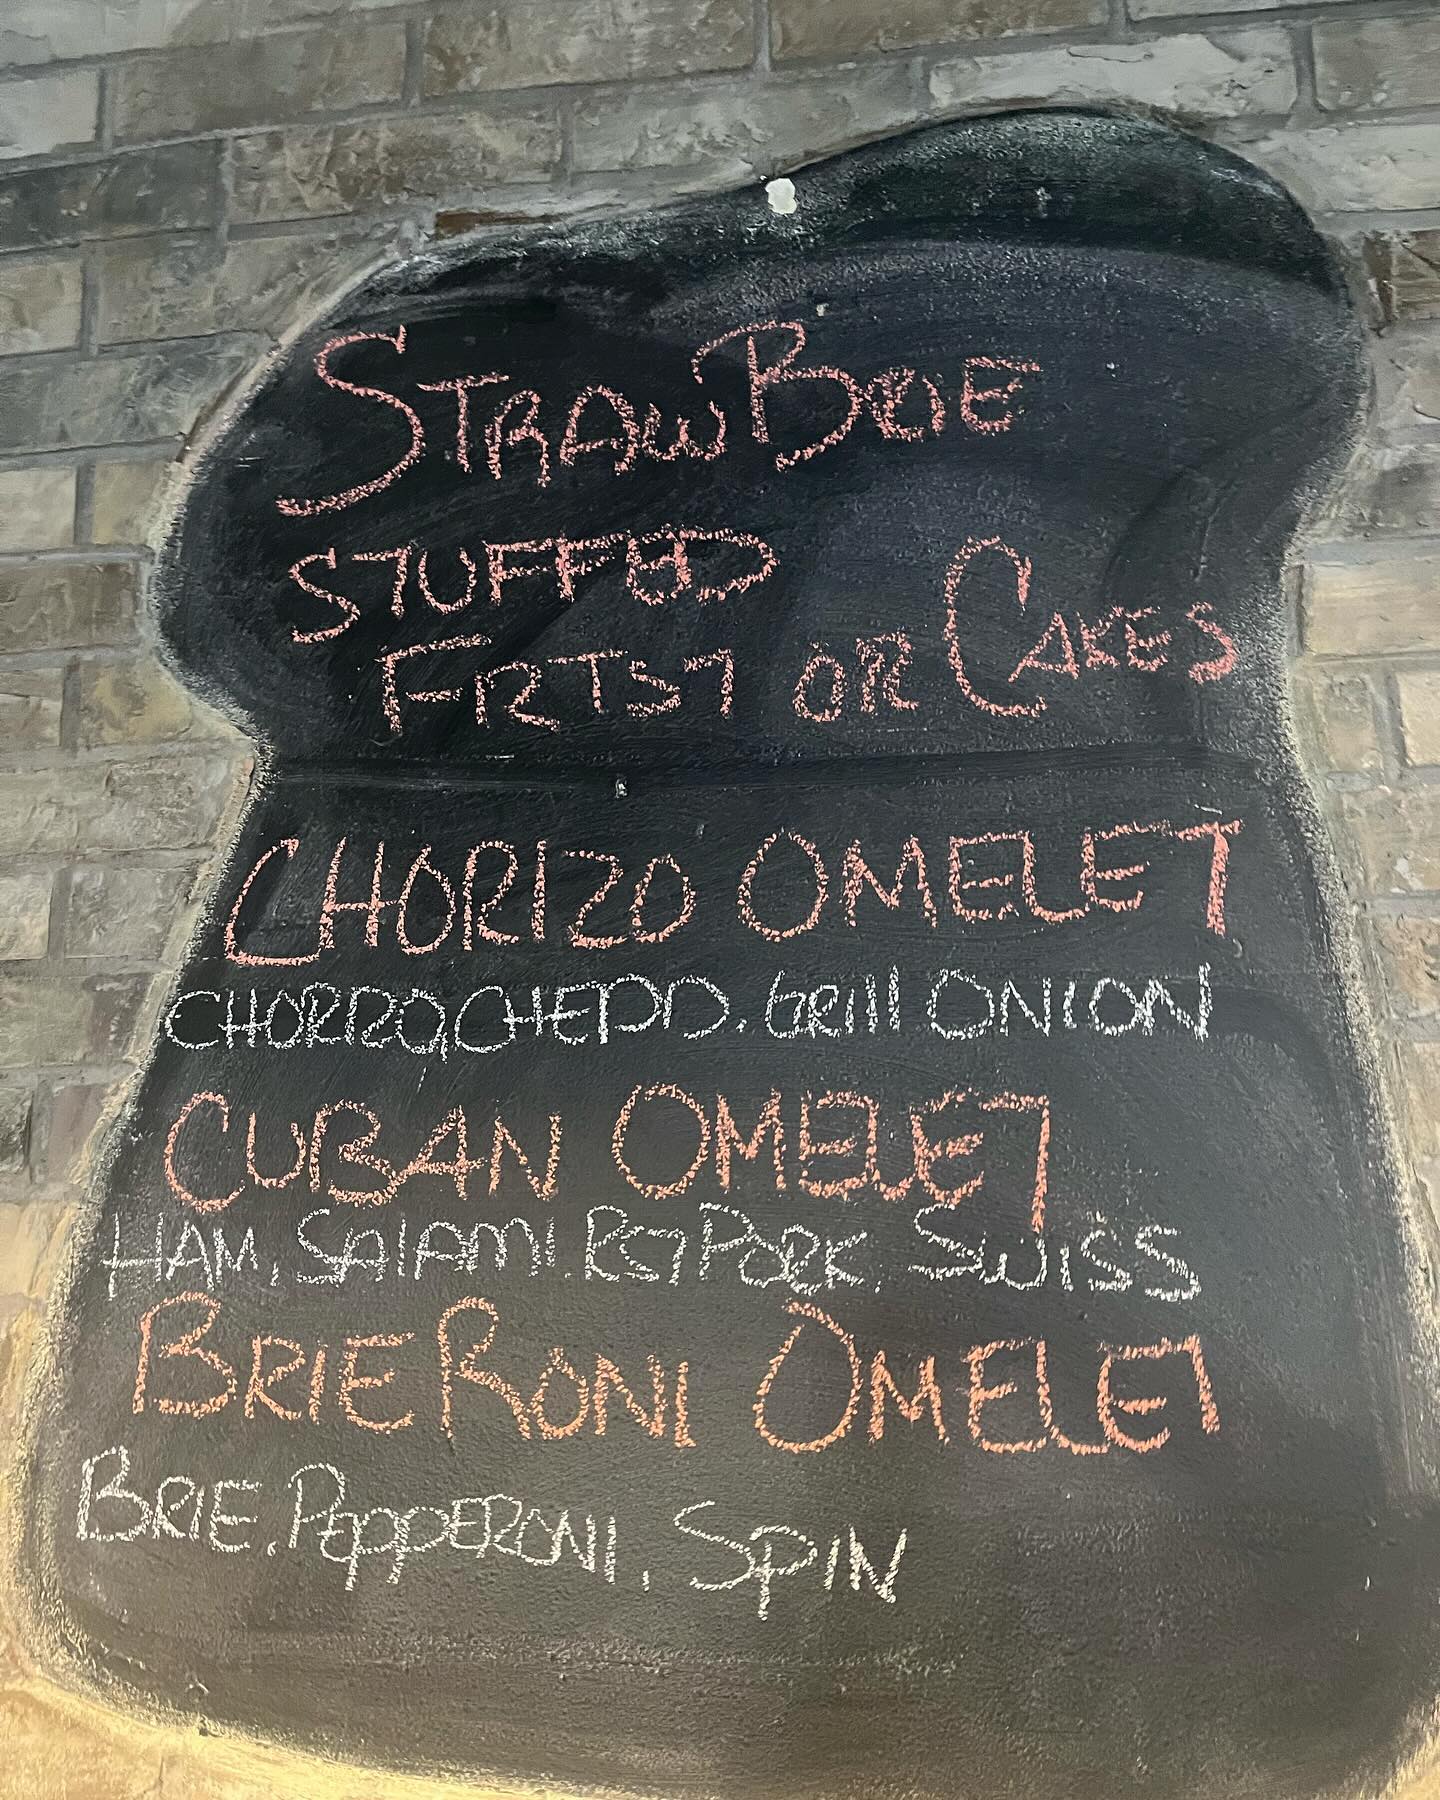 STRAWBRIE
STUFFED
FRTST OR CAKES
CHORIZO OMELET
CHORIZO, CHEDD. Grill ONION
CUBAN OMELET
HAM, SAlAMI. RST PORK, SWiSS
BRIERONI OMELET
BRIE, PEPPERONI, SPIN